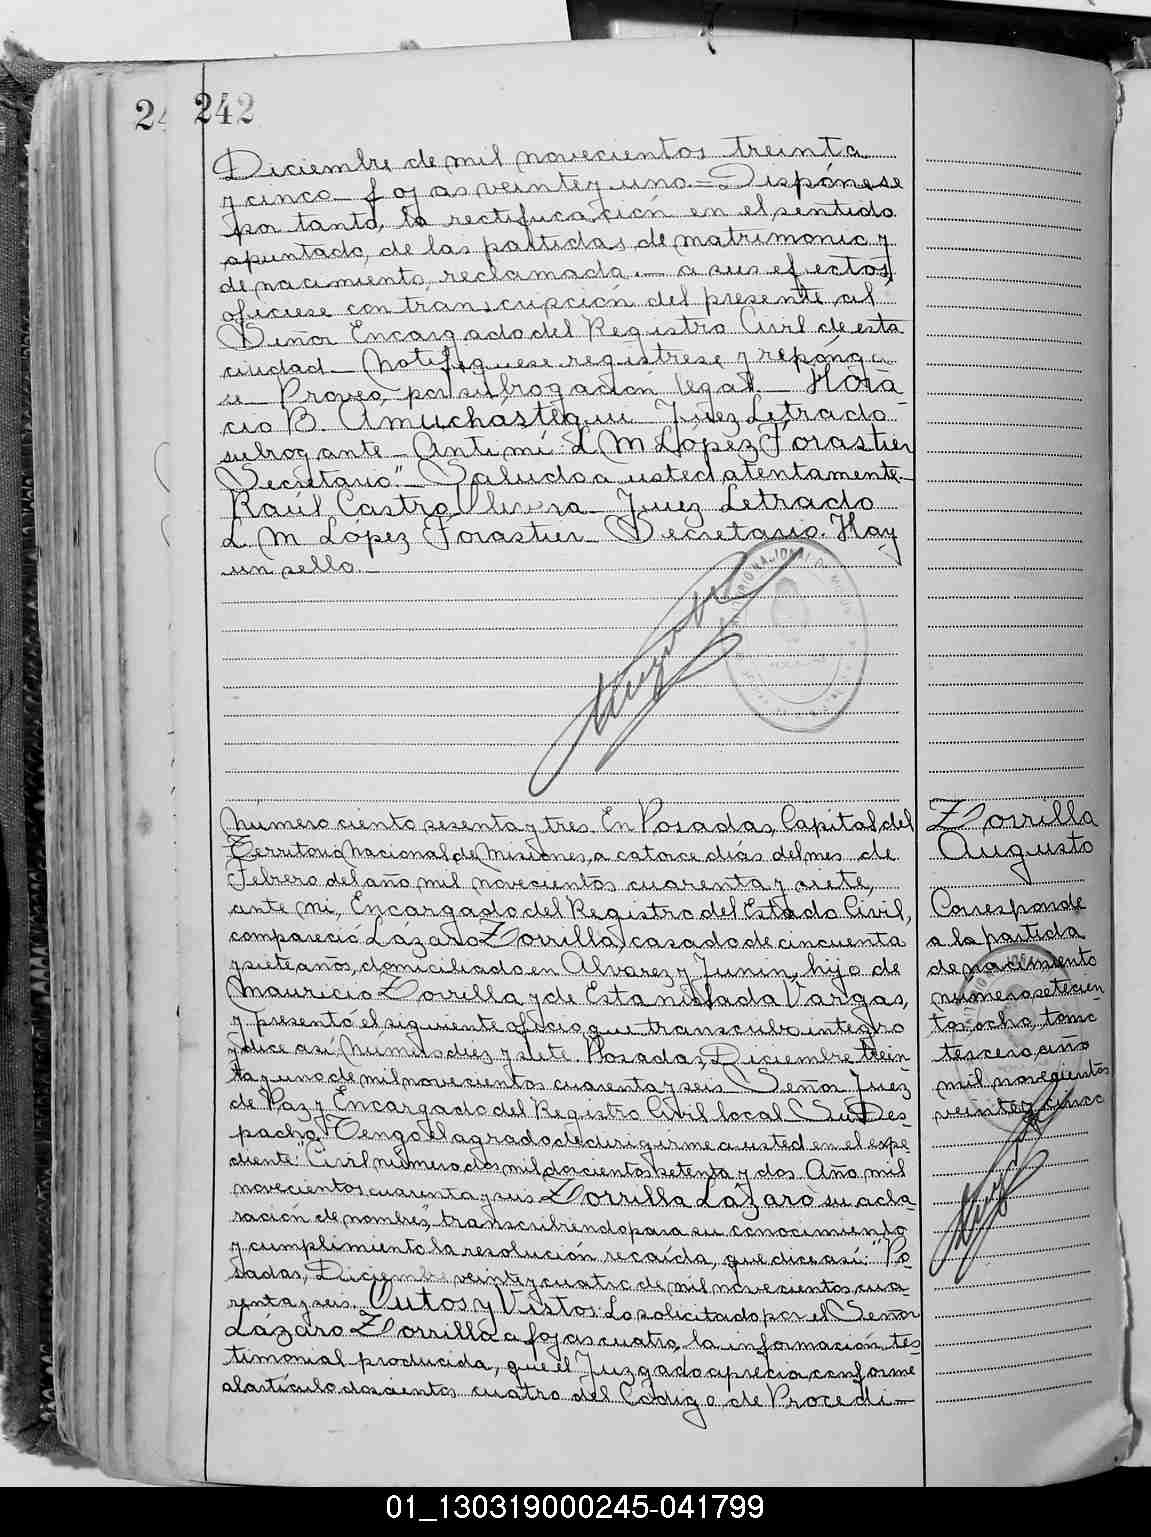 242
Diciembre de mil novecientos treinta
y cinco fojas veinte y uno.= Dispónese
por tanto, la rectificación en el sentido
apuntado, de las partidas de matrimonio y
de nacimiento, reclamada.— a sus efectos,
ofíciese con transcripción del presente, al
Señor Encargado del Registro Civil de esta
ciudad — Notifíquese, regístrese, y repónga
se — Proveo, por subrogación legal — Hora-
cio B. Amuchastegui Juez Letrado
subrogante — Ante mí: L. M. López Forastier
Secretario".— Saludo a usted atentamente.—
Raúl Castro Olivera — Juez Letrado
L. M. López Forastier — Secretario. Hay
un sello.—
Número ciento sesenta y tres. En Posadas, Capital del
Territorio Nacional de Misiones, a catorce días del mes de
Febrero del año mil novecientos cuarenta y siete,
ante mí, Encargado del Registro del Estado Civil,
compareció Lázaro Zorrilla, casado de cincuenta
y siete años, domiciliado en Alvarez y Junin, hijo de
Mauricio Zorrilla y de Estanislada Vargas,
y presentó el siguiente oficio que transcribo íntegro
y dice así: Número diez y siete. Posadas, Diciembre trein-
ta y uno de mil novecientos cuarenta y seis. Señor Juez
de Paz y Encargado del Registro Civil local Su Des-
pacho. Tengo el agrado de dirigirme a usted en el expe-
diente: Civil número dos mil doscientos setenta y dos Año mil
novecientos cuarenta y seis Zorrilla Lázaro su acla-
ración de nombre", transcribiendo para su conocimiento
y cumplimiento la resolución recaída, que dice así: "Po-
sadas, Diciembre veinte y cuatro de mil novecientos cua-
renta y seis. Autos y Vistos: Lo solicitado por el Señor
Lázaro Zorrilla a fojas cuatro, la información tes-
timonial producida, que el Juzgado aprecia conforme
al artículo doscientos cuatro del Código de Procedi—
Zorrilla
Augusto
Corresponde
a la partida
de nacimiento
número setecien-
tos ocho, tomo
tercero, año
mil novecientos
veinte y cinco
01_130319000245-041799